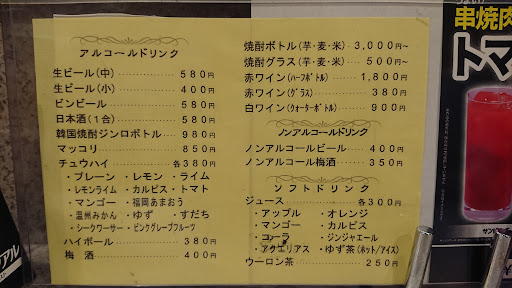 アルコールドリンク
生ビール(中)‥‥580円
生ビール(小)‥‥400円
ビンビール‥‥580円
日本酒(1合)‥‥580円
韓国焼酎ジンロボトル‥‥980円
マッコリ‥‥850円
チュウハイ‥‥各380円
・プレーン・レモン・ライム
・レモンライム・カルピス・トマト
・マンゴー・福岡あまおう
・温州みかん・ゆず・すだち
・シークワーサー・ピンクグレープフルーツ
ハイボール‥‥380円
梅酒‥‥400円
焼酎ボトル(芋・麦・米)‥3,000円~
焼酎グラス(芋・麦・米)‥‥500円~
赤ワイン(ハーフボトル)‥‥1,800円
赤ワイン(グラス)‥‥380円
白ワイン(クォーターボトル)‥‥900円
ノンアルコールドリンク
ノンアルコールビール‥‥400円
ノンアルコール梅酒‥‥350円
ソフトドリンク
ジュース‥‥各300円
・アップル・オレンジ
・マンゴー・カルピス
・コーラ・ジンジャエール
・アクエリアス・ゆず茶(ホット/アイス)
ウーロン茶‥‥250円
串焼肉
トマ